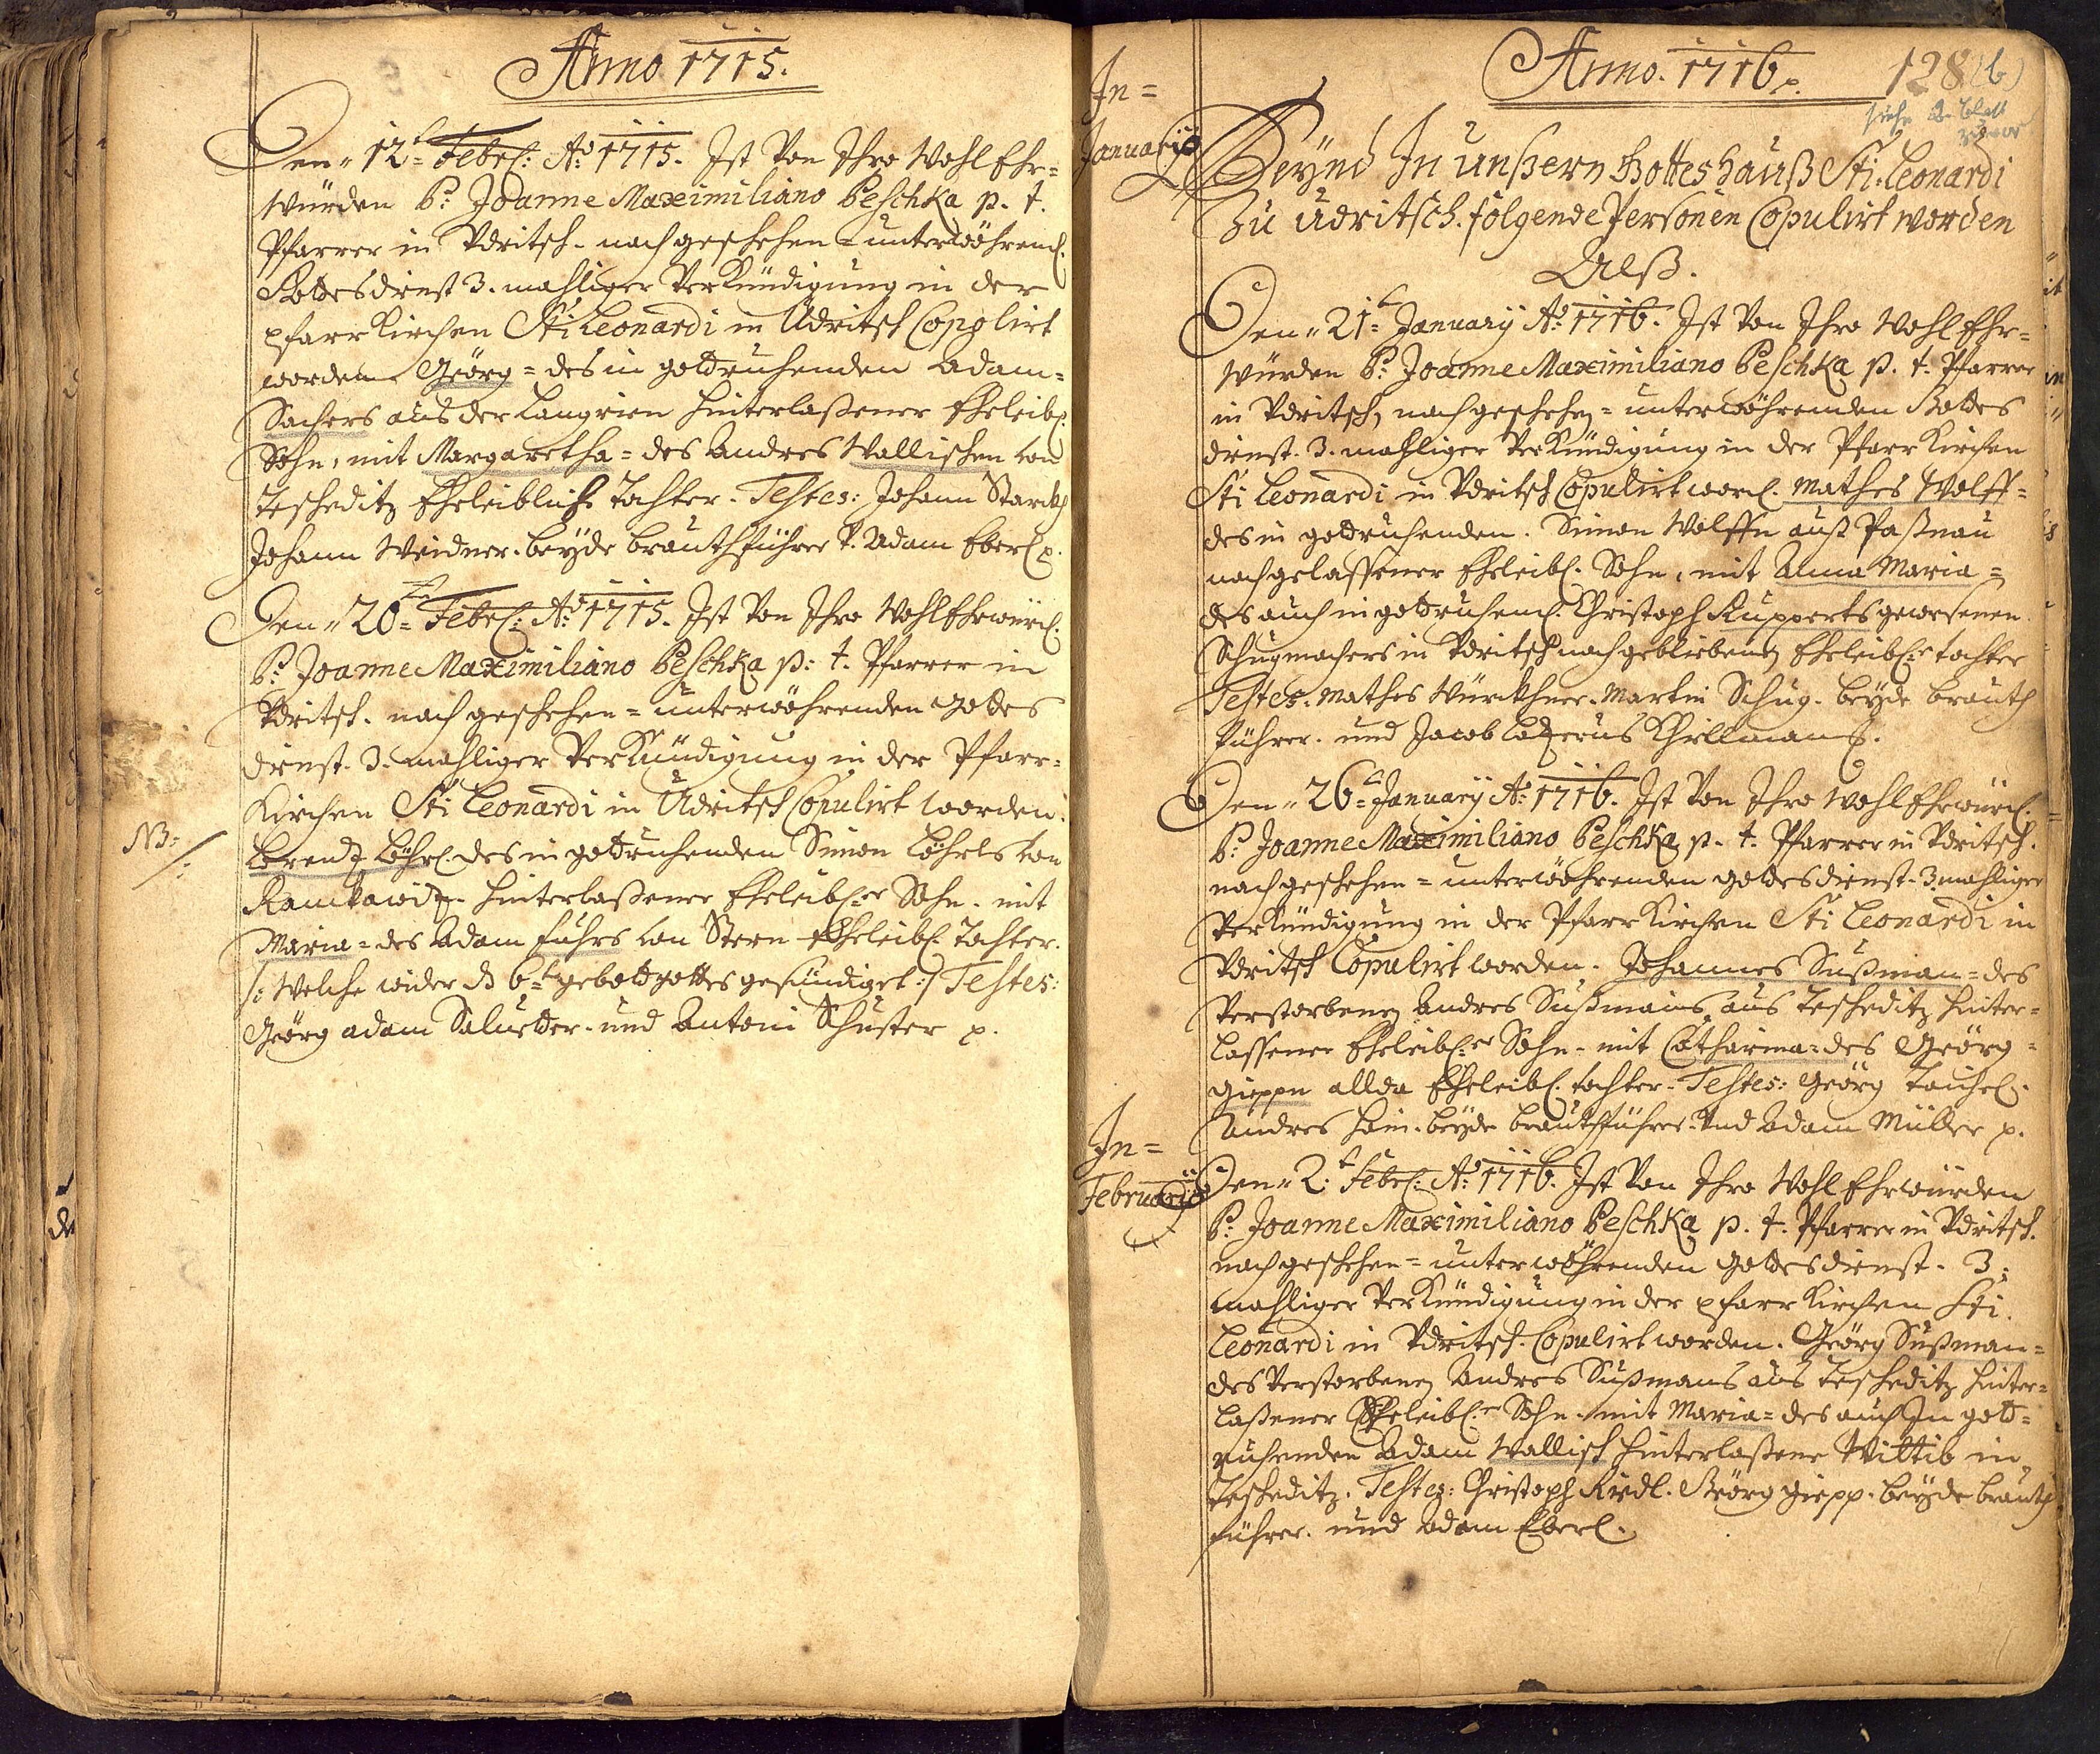 Anno 1715.
Den 12t Febr: Ao 1715. Ist Von Ihro Wohl Ehr=
würden P: Joanne Maximiliano Peschka p. t.
Pfarrer in Vdritsch. nach geschehen = unterwöhrend.
Gottesdienst 3. mahliger Verkündigung in der
pfarr Kirchen Sti Leonardi in Udritsch Copulirt
worden Geörg = des in gott ruhenden Adam=
Sachers aus der hinterlaßener Eheleibl.
Sohn, mit Margaretha = des Andres Wallischen von
Tescheditz Eheleibliche Tochter. Testes: Johann Starckh
Johann Weidner. beyde brauthführer V. Adam Eberl p.
Den 20= Febr: Ao 1715. Ist Von Ihro Wohl Ehrwürd.
P: Joanne Maximiliano Peschka p: t. Pfarrer in
Vdritsch. nach geschehen = unterwöhrenden gottes
dienst. 3. mahliger Verkündigung in der Pfarr=
Kirchen Sti Leonardi in Udritsch Copulirt worden.
NB:
Löhrl. des in gott ruhenden Simon Löhrls von
hinterlaßener Eheleibl:er Sohn. mit
Maria = des Adam fuhrs von Stern Eheleibl. Tochter.
/: Welche wider d 6te gebott gottes gesündiget :/ Testes:
Geörg adam und Antoni Schuster p.
Anno. 1716 p. 128 (b)
siehe 2. blatt
zuvor
In=
Januario
Seynd In unßern Gottes hauß Sti. Leonardi
Zu Udritsch. folgende Personen Copulirt worden
Alß.
Den 21t January Ao 1716. Ist Von Ihro Wohl Ehr=
würden P: Joanne Maximiliano Peschka p. t. Pfarrer
in Vdritsch, nach geschehen = unterwöhrenden Gottes
dienst. 3. mahliger Verkündigung in der Pfarr Kirchen
Sti Leonardi in Vdritsch Copulirt word. Mathes Wolff=
des in gott ruhenden. Simon Wolffn auß Paßnau
nachgelassener Eheleibl. Sohn, mit Anna Maria =
des auch in gott ruhend. Christoph Rupperts gewesenen
Schugmachers in Vdritsch nachgebliebene Eheleibl:e tochter
Testes. Mathes Würckhner. Martin Schug. beyde brauth
führer. und Jacob
Den 26t January Ao 1716. Ist Von Ihro Wohl Ehrwürd.
P: Joanne Maximiliano Peschka p. t. Pfarrer in Vdritsch.
nach geschehen = unterwöhrenden gottesdienst. 3 mahliger
Verkündigung in der Pfarr Kirchen Sti Leonardi in
Vdritsch Copulirt worden. Johannes Sußman = des
Verstorbenen Andres Sußmans aus Tescheditz hinter=
lassener Eheleibl:er Sohn. mit Catharina = des Geörg=
Giepen allda Eheleibl. tochter. Testes: Geörg
Andres beyde brauthführer. Vnd Adam Müller p.
In=
Februario
Den 2t Febr: Ao 1716. Ist Von Ihro Wohl Ehrwürden
P: Joanne Maximiliano Peschka p. t. Pfarrer in Vdritsch.
nach geschehen = unterwöhrenden gottesdienst. 3.
mahliger Verkündigung in der pfarr Kirchen Sti.
Leonardi in Vdritsch. Copulirt worden. Geörg Sußman=
des Verstorbenen Andres Sußmans aus Tescheditz hinter=
laßener Eheleibl:er Sohn. mit Maria = des auch In gott=
ruhenden Adam Wallisch hinterlaßene Wittib in
Tescheditz. Testes: Christoph Riedl. Geörg Giepp. beyde brauth
führer. und Adam Eberl.